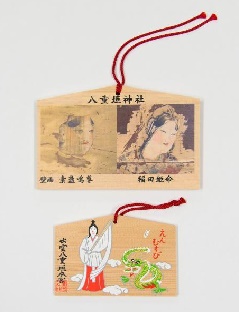 八重垣神社
壁画 素盞嗚尊
稲田姫命
えんむすび
出雲八重垣神社